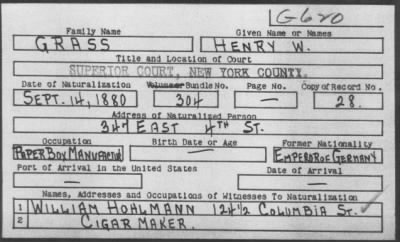 G620
Family Name Given Name or Names
GRASS HENRY W.
Title and Location of Court
SUPERIOR COURT, NEW YORK COUNTY.
Date of Naturalization Volume or Bundle No. Page No. Copy of Record No.
SEPT. 14, 1880 304 — 28.
Address of Naturalized Person
347 EAST 4TH ST.
Occupation Birth Date or Age Former Nationality
PAPER BOX MANUFACTUR — EMPEROR OF GERMANY
Port of Arrival in the United States Date of Arrival
— —
Names, Addresses and Occupations of Witnesses To Naturalization
1 WILLIAM HOHLMANN 124½ COLUMBIA ST.
2 CIGAR MAKER.